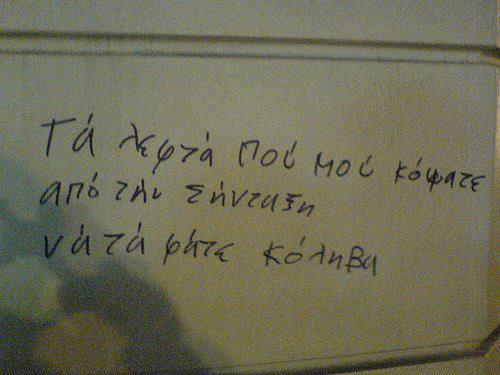 Τά λεφτά πού μού κόψατε
από τήν σήνταξη
νά τά φάτε κόληβα